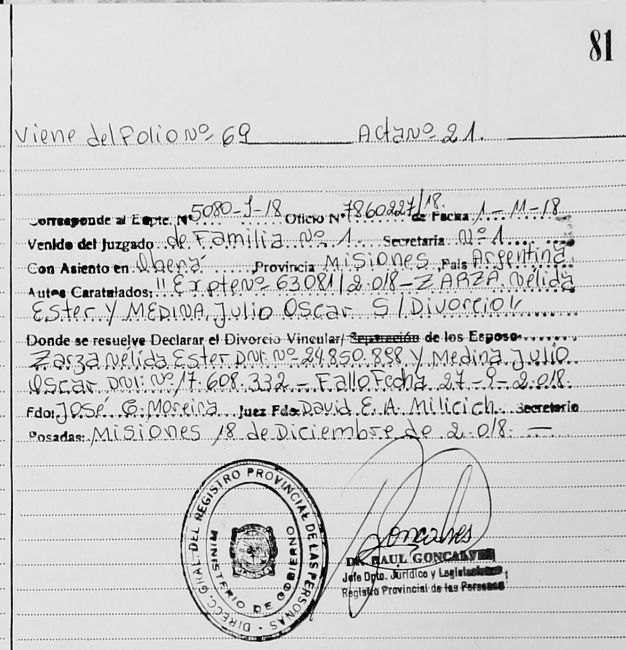 81
Viene del Folio Nº 69 Acta Nº 21.
Corresponde al Expte. Nº 5080-J-18 Oficio Nº 7860227/18. de Fecha 1-11-18
Venido del Juzgado de Familia Nº 1 Secretaria Nº 1
Con Asiento en Oberá Provincia Misiones País Argentina
Autos Caratulados: "Expte Nº 63081/2.018-ZARZA Nélida
Ester y MEDINA, Julio Oscar S/Divorcio"
Donde se resuelve Declarar el Divorcio Vincular/Separación de los Esposo
Zarza Nélida Ester DNI: Nº 24.850.898 y Medina Julio
Oscar DNI: Nº 17.608.332 - Fallo Fecha 27-9-2.018.
Fdo: José G. Moreira Juez Fdo David E. A. Milicich Secretario
Posadas: Misiones 18 de Diciembre de 2.018. —
DIRECC. GRAL. DEL REGISTRO PROVINCIAL DE LAS PERSONAS
MINISTERIO DE GOBIERNO
Goncalves
Dr. RAUL GONCALVES
Jefe Dpto. Jurídico y Legislaciones
Registro Provincial de las Personas